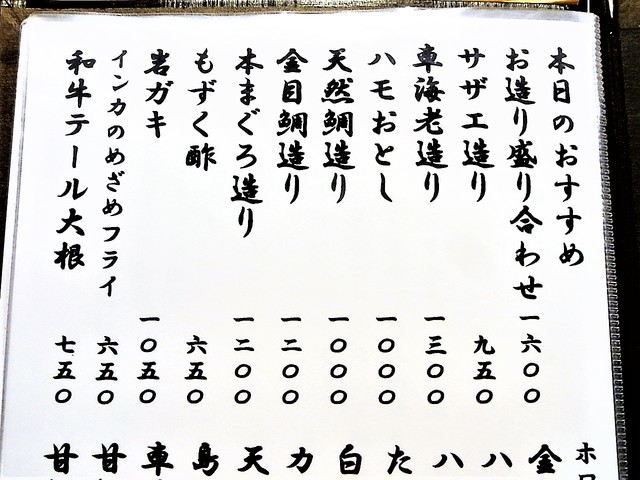 本日のおすすめ
お造り盛り合わせ 一六〇〇
サザエ造り 九五〇
車海老造り 一三〇〇
ハモおとし 一〇〇〇
天然鯛造り 一〇〇〇
金目鯛造り 一二〇〇
本まぐろ造り 一二〇〇
もずく酢 六五〇
岩ガキ 一〇五〇
インカのめざめフライ 六五〇
和牛テール大根 七五〇
ホワ
金
ハ
ハ
た
白
カ
天
島
車
甘
甘